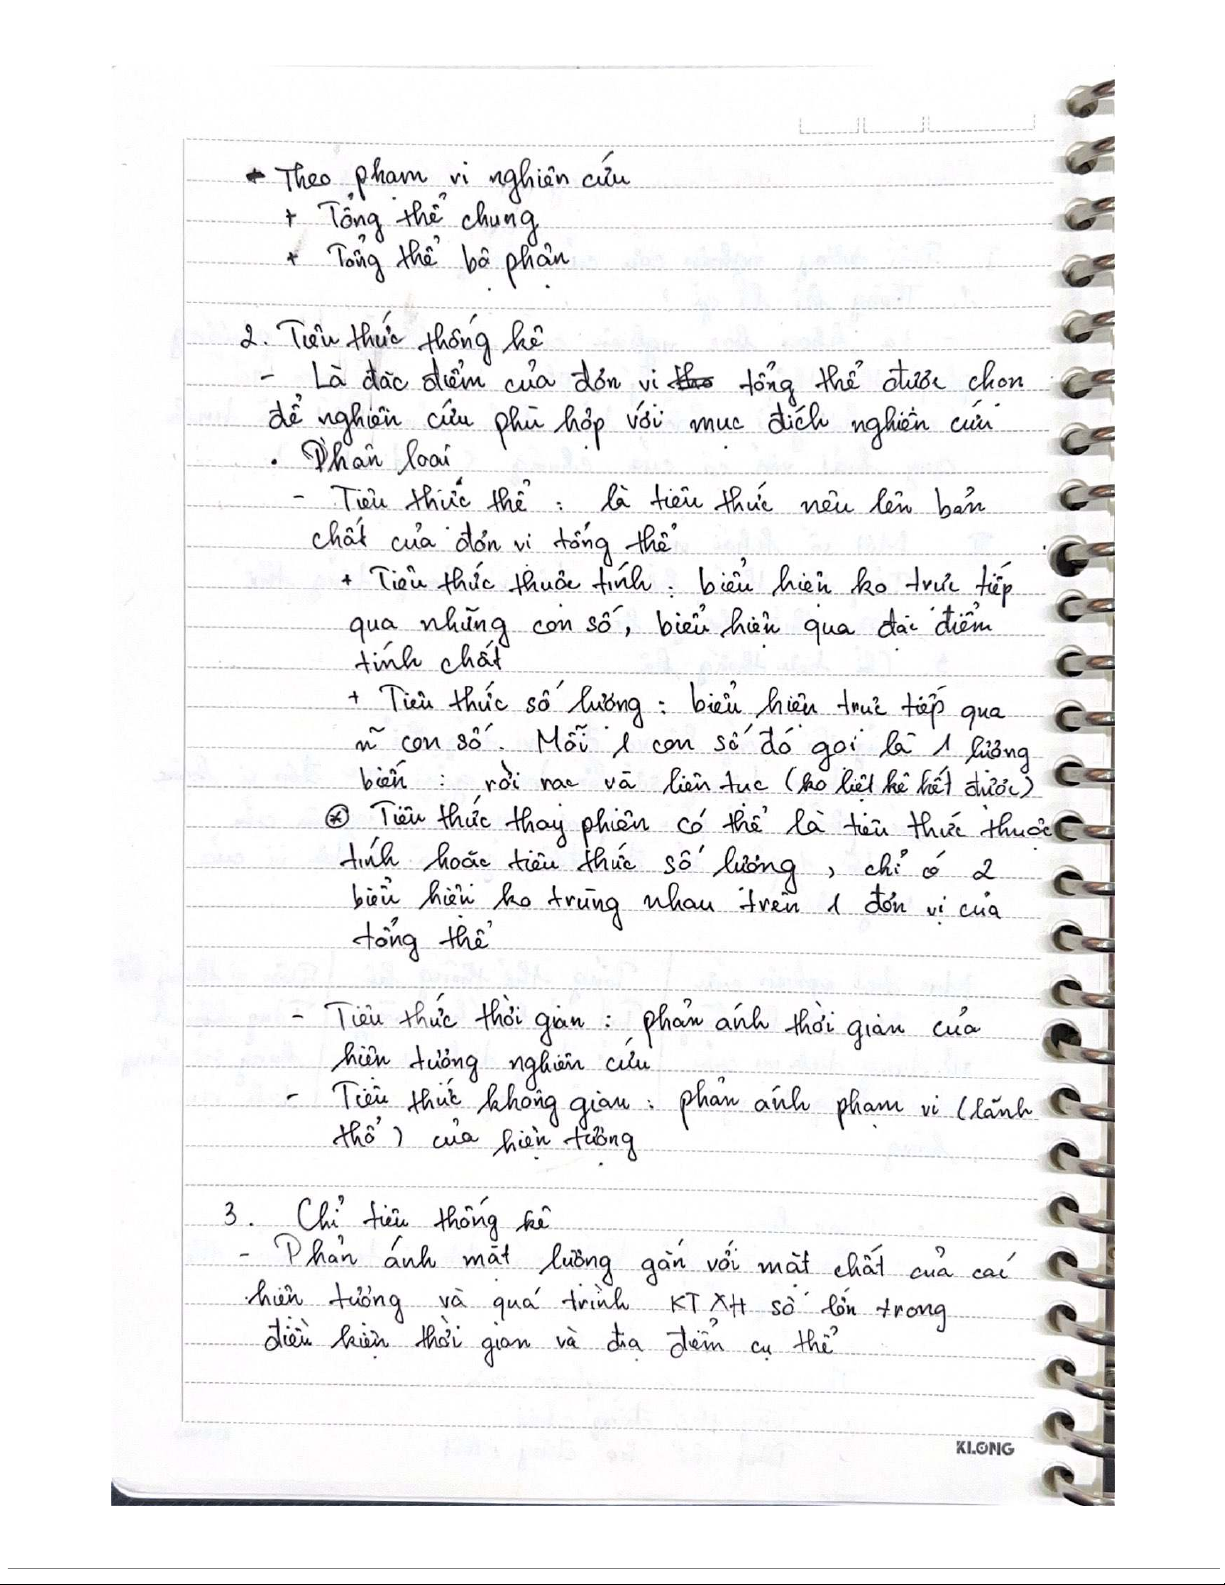 - Theo phạm vi nghiên cứu
+ Tổng thể chung
+ Tổng thể bộ phận
2. Tiêu thức thống kê
- Là đặc điểm của đơn vị tổng thể được chọn
để nghiên cứu phù hợp với mục đích nghiên cứu
. Phân loại
- Tiêu thức thể : là tiêu thức nêu lên bản
chất của đơn vị tổng thể
+ Tiêu thức thuộc tính : biểu hiện ko trực tiếp
qua những con số, biểu hiện qua đặc điểm
tính chất
+ Tiêu thức số lượng : biểu hiện trực tiếp qua
n~ con số. Mỗi 1 con số đó gọi là 1 lượng
biến : rời rạc và liên tục (ko liệt kê hết được)
* Tiêu thức thay phiên có thể là tiêu thức thuộc
tính hoặc tiêu thức số lượng, chỉ có 2
biểu hiện ko trùng nhau trên 1 đơn vị của
tổng thể
- Tiêu thức thời gian : phản ánh thời gian của
hiện tượng nghiên cứu
- Tiêu thức không gian : phản ánh phạm vi (lãnh
thổ) của hiện tượng
3. Chỉ tiêu thống kê
- Phản ánh mặt lượng gắn với mặt chất của các
hiện tượng và quá trình KTXH số lớn trong
điều kiện thời gian và địa điểm cụ thể
KLONG